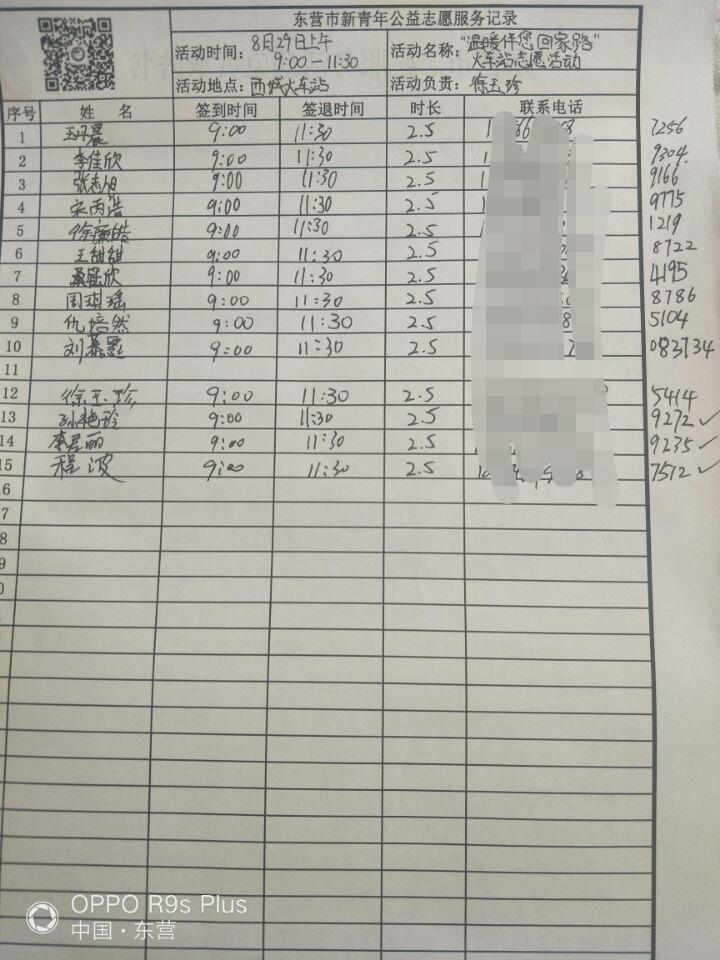 东营市新青年公益志愿服务记录
活动时间：8月29日上午 9:00-11:30
活动名称："温暖伴您回家路" 火车站志愿活动
活动地点：西城火车站 活动负责：徐玉珍
序号 姓名 签到时间 签退时间 时长 联系电话
1 9:00 11:30 2.5 7256
2 李佳欣 9:00 11:30 2.5 9304
3 张志旭 9:00 11:30 2.5 9166
4 宋丙浩 9:00 11:30 2.5 9775
5 9:00 11:30 2.5 1219
6 王甜甜 9:00 11:30 2.5 8722
7 9:00 11:30 2.5 4195
8 周琪瑶 9:00 11:30 2.5 8786
9 仇培然 9:00 11:30 2.5 5104
10 9:00 11:30 2.5
11
12 徐玉珍 9:00 11:30 2.5 5414
13 孙艳珍 9:00 11:30 2.5 9272 ✓
14 9:00 11:30 2.5 9235 ✓
15 程波 9:00 11:30 2.5 7512 ✓
6
7
8
9
0
OPPO R9s Plus
中国·东营